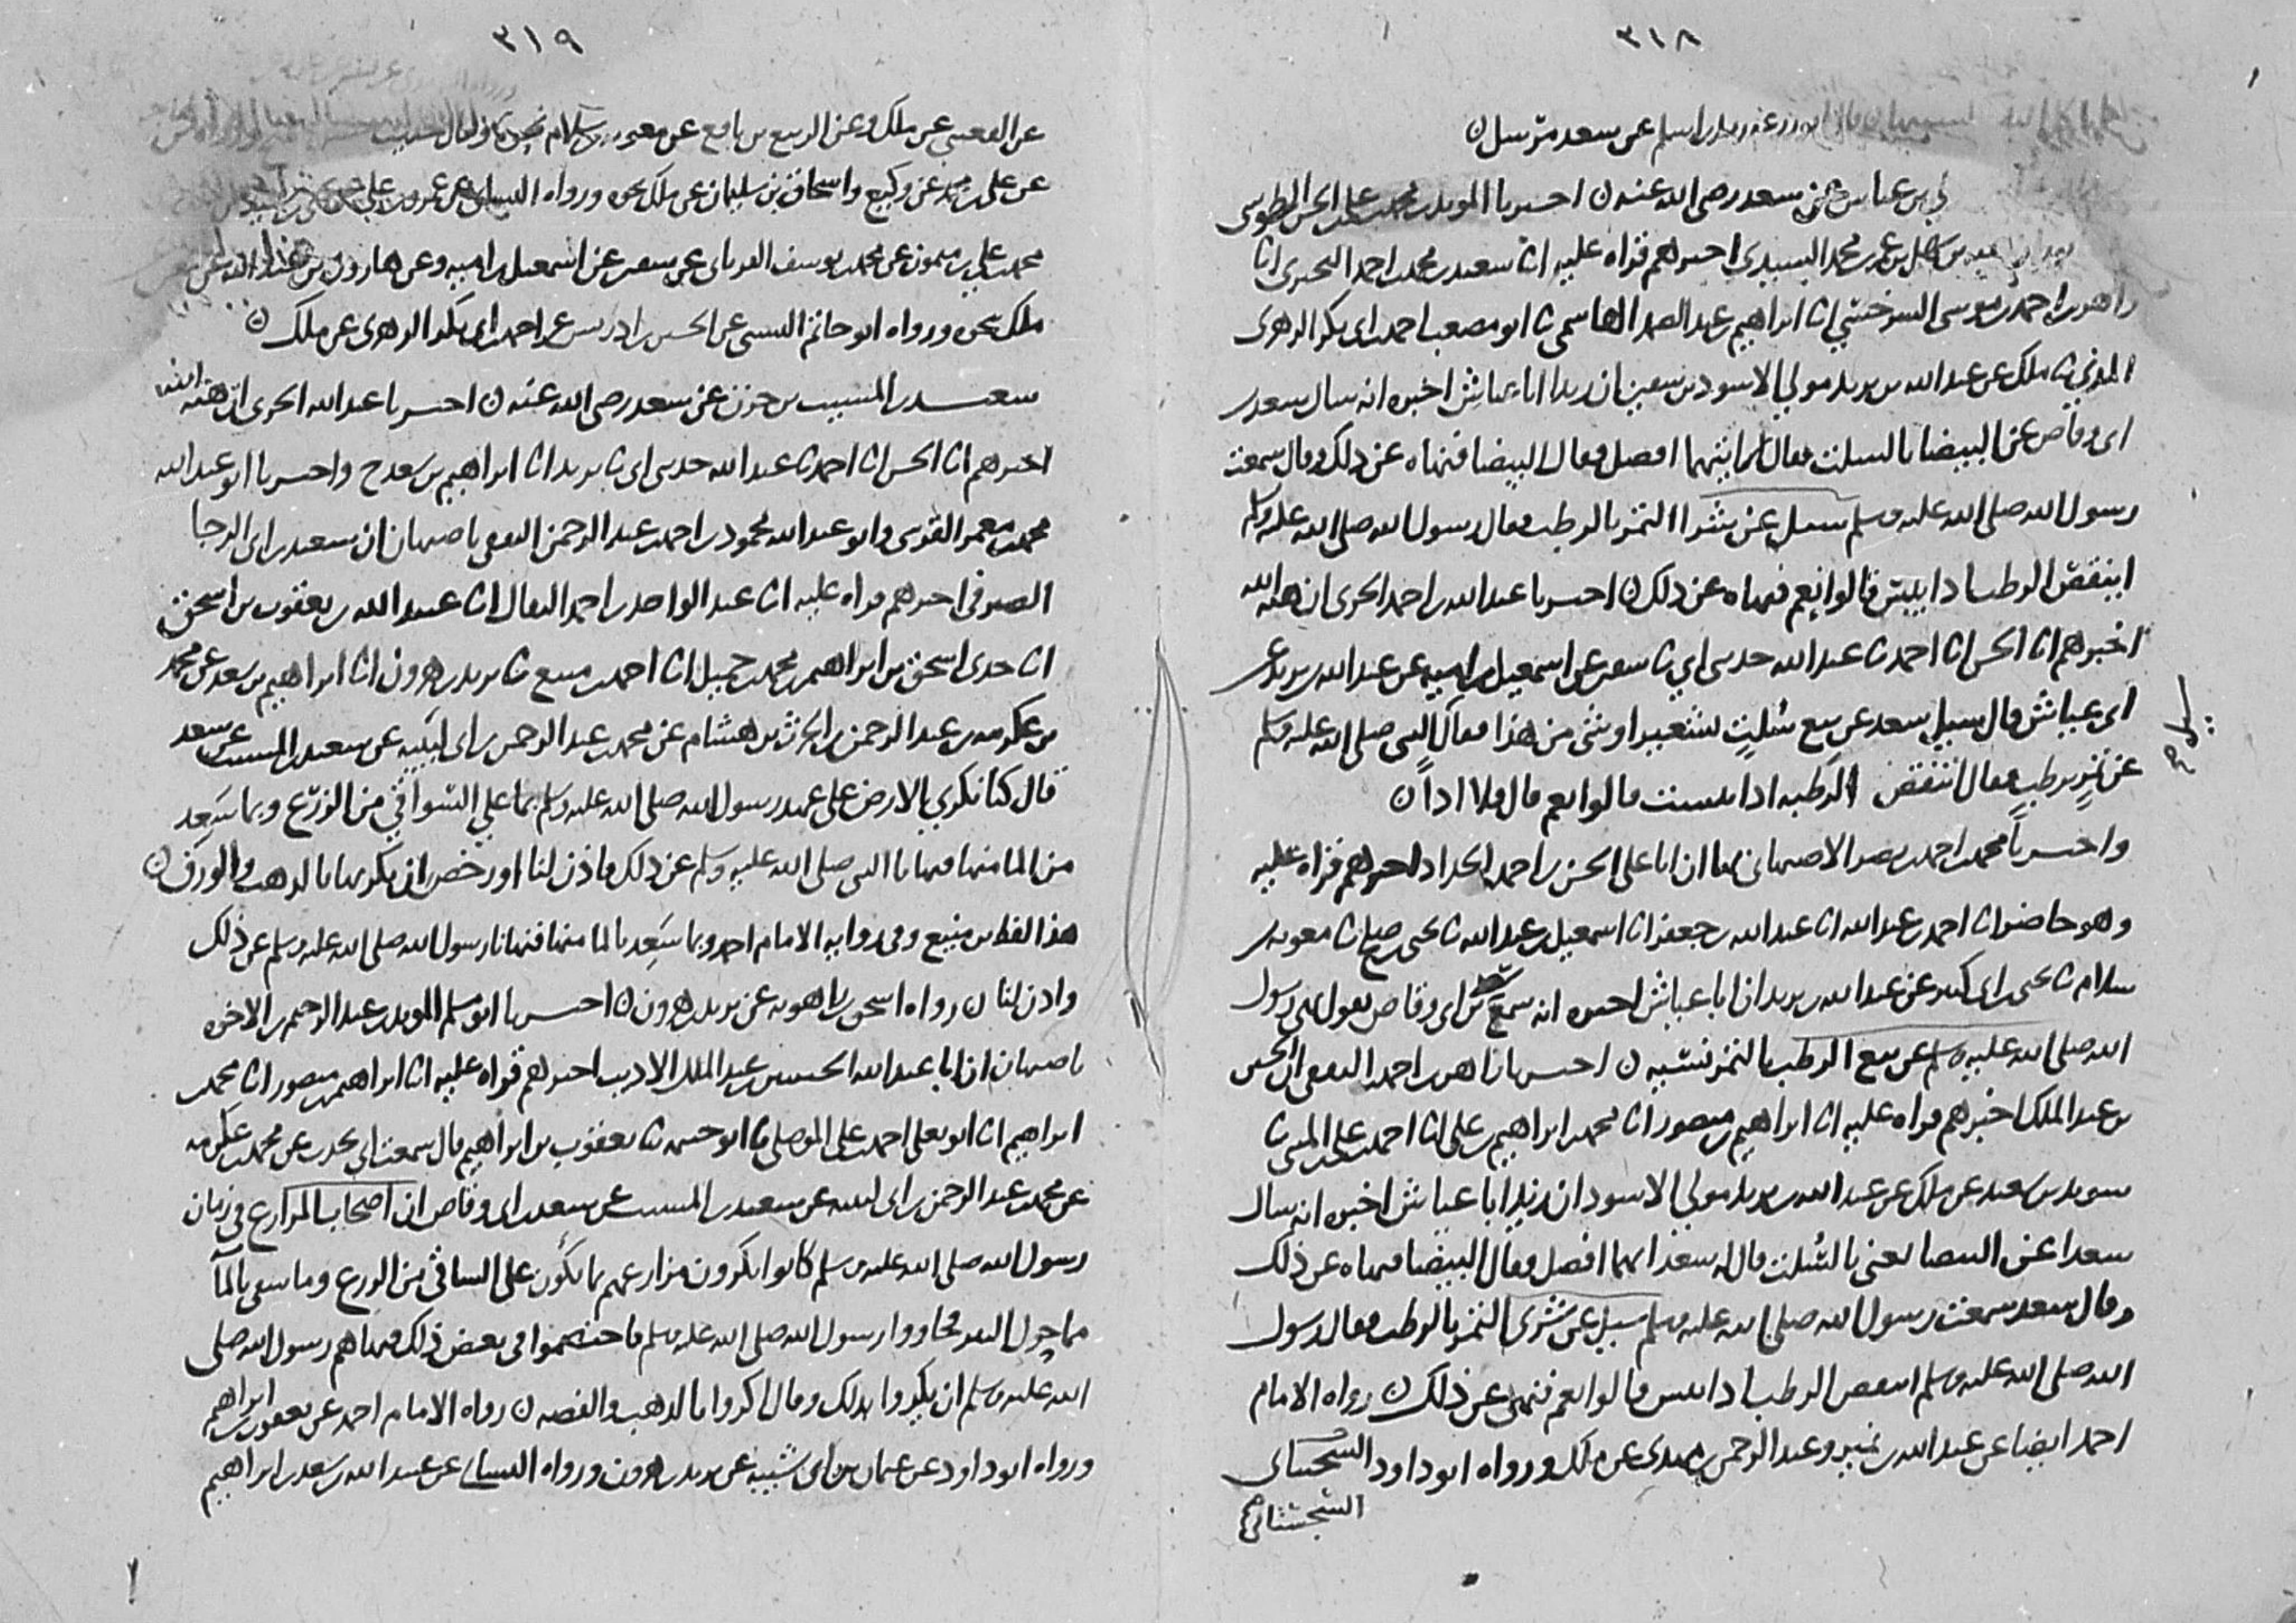 ٣١٨
اسلم عن سعد مرسل ن
بن عباس عن سعد رضي الله عنه ن اخبرنا المويد بن محمد بن علي الحسن الطوسي
بن سهل بن عمر بن محمد السيدي اخبرهم قراه عليه انا سعيد بن محمد بن احمد البحيري انا
زاهر بن احمد بن موسى السرخسي انا ابراهيم بن عبد الصمد الهاشمي ثنا ابو مصعب احمد بن ابي بكر الزهري
المدني ثنا ملك عن عبد الله بن يزيد مولي الاسود بن سفين ان زيدا ابا عياش اخبره انه سال سعد بن
ابي وقاص عن البيضا بالسلت فقال ايتهما افضل فقال البيضا فنهاه عن ذلك وقال سمعت
رسول الله صلى الله عليه وسلم سيل عن شرا التمر بالرطب فقال رسول الله صلى الله عليه وسلم
اينقص الرطب اذا يبس قالوا نعم فنهاه عن ذلك ن اخبرنا عبد الله بن احمد الحربي ان هبة الله
اخبرهم انا الحسن انا احمد ثنا عبد الله حدثني ابي ثنا سفين عن اسمعيل بن اميه عن عبد الله بن يزيد عن
ابي عياش قال سيل سعد عن بيع سلت بشعير او شي من هذا فقال سيل النبي صلى الله عليه وسلم
عن تمر برطب فقال تنقص الرطبه اذا يبست قالوا نعم قال فلا اذا ن
واخبرنا محمد بن احمد بن نصر الاصبهاني بها ان ابا علي الحسن بن احمد الحداد اخبرهم قراه عليه
وهو حاضر انا احمد بن عبد الله انا عبد الله بن جعفر انا اسمعيل بن عبد الله ثنا يحيى بن صلح ثنا معويه بن
سلام ثنا يحيى بن ابي كثير عن عبد الله بن يزيد ان ابا عياش اخبره انه سمع سعد بن ابي وقاص يقول نهى رسول
الله صلى الله عليه وسلم عن بيع الرطب بالتمر نسيه ن اخبرنا زاهر بن احمد الثقفي ان الحسين
بن عبد الملك اخبرهم قراه عليه انا ابراهيم بن منصور انا محمد بن ابراهيم بن علي انا احمد بن علي بن المثنى ثنا
سويد بن سعيد عن ملك عن عبد الله بن يزيد مولي الاسود ان زيدا ابا عياش اخبره انه سال
سعدا عن البيضا يعني بالسلت قال له سعد ايهما افضل فقال البيضا فنهاه عن ذلك
وقال سعد سمعت رسول الله صلى الله عليه وسلم سيل عن شرى التمر بالرطب فقال رسول
الله صلى الله عليه وسلم اينقص الرطب اذا يبس قالوا نعم فنهى عن ذلك ن رواه الامام
احمد ايضا عن عبد الله بن نمير وعبد الرحمن بن مهدي عن ملك ورواه ابو داود السجستاني
السجستاني
٣١٩
عن القعنبي عن ملك وعن الربيع بن نافع عن معويه بن سلام
عن علي بن محمد عن وكيع واسحاق بن سليمان عن ملك نحوه ورواه النسائي عن عمرو بن علي
محمد بن علي بن ميمون عن محمد بن يوسف الفريابي عن سفين عن اسمعيل بن اميه وعن هارون بن عبد الله عن معن
ملك نحوه ورواه ابو حاتم البستي عن الحسين بن ادريس عن احمد بن ابي بكر الزهري عن ملك ن
سعيد بن المسيب بن حزن عن سعد رضي الله عنه ن اخبرنا عبد الله الحربي ان هبة الله
اخبرهم انا الحسن انا احمد ثنا عبد الله حدثني ابي ثنا يزيد انا ابراهيم بن سعد ح واخبرنا ابو عبد الله
محمد بن معمر القرشي وابو عبد الله محمود بن احمد بن عبد الرحمن الثقفي باصبهان ان سعيد بن ابي الرجا
الصيرفي اخبرهم قراه عليه انا عبد الواحد بن احمد البقال انا عبيد الله بن يعقوب بن اسحق
انا جدي اسحق بن ابراهيم بن محمد بن جميل انا احمد بن منيع ثنا يزيد بن هرون انا ابراهيم بن سعد عن محمد
بن عكرمه بن عبد الرحمن بن الحرث بن هشام عن محمد بن عبد الرحمن بن ابي لبيبه عن سعيد بن المسيب عن سعد
قال كنا نكري الارض على عهد رسول الله صلى الله عليه وسلم بما علي السواقي من الزرع وبما سعد
من الما منها فنهانا النبي صلى الله عليه وسلم عن ذلك فاذن لنا او رخص ان نكريها بالذهب والورق ن
هذا لفظ بن منيع وفي روايه الامام احمد وبما سعد بالما منها فنهانا رسول الله صلى الله عليه وسلم عن ذلك
واذن لنا ن رواه اسحق بن راهويه عن يزيد بن هرون ن اخبرنا ابو مسلم المويد بن عبد الرحيم بن الاخوه
باصبهان ان ابا عبد الله الحسين بن عبد الملك الاديب اخبرهم قراه عليه انا ابراهيم بن منصور انا محمد بن
ابراهيم انا ابو يعلي احمد بن علي الموصلي ثنا ابو خيثمه ثنا يعقوب بن ابراهيم قال سمعت ابي يحدث عن محمد بن عكرمه
عن محمد بن عبد الرحمن بن ابي لبيبه عن سعيد بن المسيب عن سعد بن ابي وقاص ان اصحاب المزارع في زمان
رسول الله صلى الله عليه وسلم كانوا يكرون مزارعهم بما يكون علي الساقي من الزرع وما سقي بالمآ
مما حول البير فجاووا رسول الله صلى الله عليه وسلم فاختصموا في بعض ذلك فنهاهم رسول الله صلى
الله عليه وسلم ان يكروا بذلك وقال اكروا بالذهب والفضه ن رواه الامام احمد عن يعقوب بن ابراهيم
ورواه ابو داود عن عثمان بن ابي شيبه عن يزيد بن هرون ورواه النسائي عن عبيد الله بن سعد بن ابراهيم